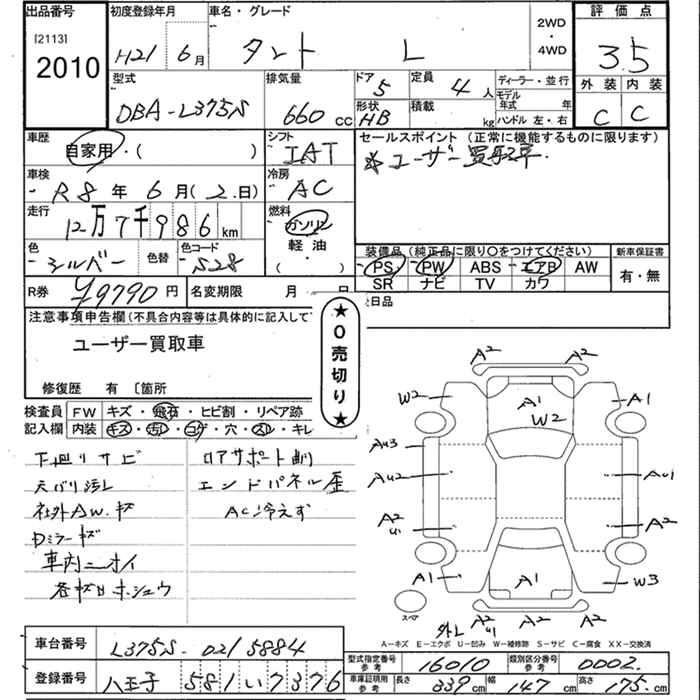 出品番号
[2113]
2010
初度登録年月
H21 6月
車名・グレード
タント L
2WD
・
4WD
評価点
3.5
外装 内装
C C
型式
DBA-L375S
排気量
660 CC
ドア 5
定員 4人
形状 HB
積載 kg
ディーラー・並行
モデル年式 年
ハンドル 左・右
車歴
自家用・( )
シフト
IAT
セールスポイント (正常に機能するものに限ります)
※ユーザー買取車.
車検
R8年 6月(2.日)
冷房
AC
走行
12万7千986km
燃料
ガソリン
軽油
( )
色
シルバー
色替
色コード
S28
装備品(純正品に限り○をつけてください)
PS PW ABS エアB AW
SR ナビ TV カワ
新車保証書
有・無
R券 ¥9790円
名変期限 月 日
日品
注意事項申告欄(不具合内容等は具体的に記入して
ユーザー買取車
★0売切り★
修復歴 有 〔箇所
検査員
記入欄
FW キズ・飛石・ヒビ割・リペア跡
内装 キズ・汚レ・コゲ・穴・スレ・キレ
下廻りサビ
天バリ汚レ
社外AW.キズ
Dミラーキズ
車内ニオイ
各キズHホシュウ
ロアサポート曲
エンドパネル歪
AC冷えず
A2 A2
W2 A1 A1
W2
AU3
AU2 AU1
A2 U1 A2
A1 A1 W3
スペア
外し
A2 U1 A2 A2
A―キズ E―エクボ U―凹み W―補修跡 S―サビ C―腐食 XX―交換済
車台番号
L375S-0215884
登録番号
八王子 581い7376
型式指定番号
参考
16010
類別区分番号
参考
0002.
車庫証明用
参考
長さ 339cm
幅 147cm
高さ 175.cm